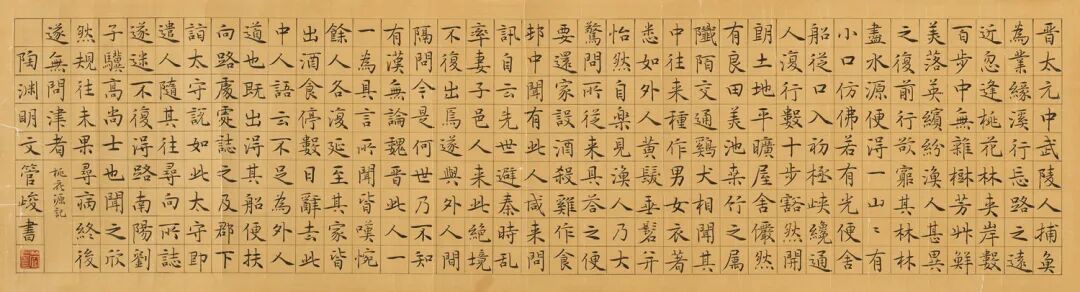 晋太元中武陵人捕魚
為業緣溪行忘路之遠
近忽逢桃花林夹岸數
百步中無雜樹芳艸鮮
美落英繽紛渔人甚異
之復前行欲窮其林林
盡水源便得一山〻有
小口仿佛若有光便舍
船從口入初極峡纔通
人復行數十步豁然開
朗土地平曠屋舍儼然
有良田美池桒竹之属
陌交通鷄犬相聞其
中往来種作男女衣著
悉如外人黄髮垂髫并
怡然自樂見渔人乃大
驚問所從来具荅之便
要還家設酒殺雞作食
邨中聞有此人咸来問
訊自云先世避秦時乱
率妻子邑人来此絶境
不復出焉遂與外人間
隔問今是何世乃不知
有漢無論魏晋此人一
一為具言所聞皆嘆惋
餘人各復延至其家皆
出酒食停數日辭去此
中人語云不足為外人
道也既出得其船便扶
向路處處誌之及郡下
詣太守說如此太守即
遣人隨其往尋向所誌
遂迷不復得路南陽劉
子驥高尚士也聞之欣
然規往未果尋病終後
遂無問津者
桃花源記
陶渊明文管峻書